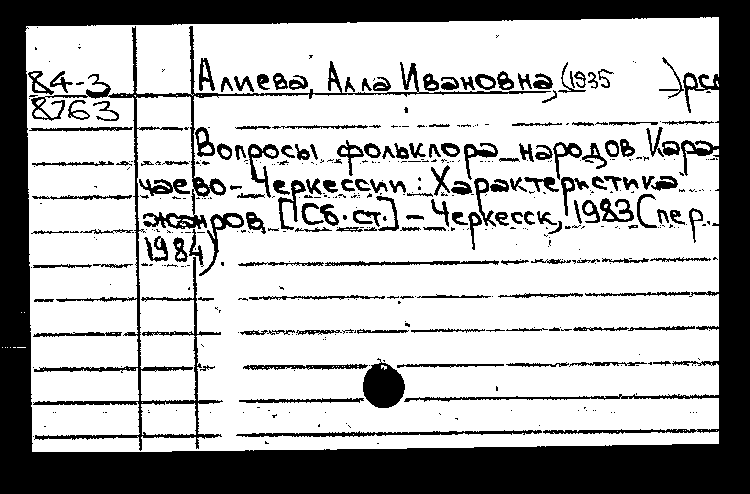 84-3
8763
Алиева, Алла Ивановна, (1935 )
Вопросы фольклора народов Кара-
чаево-Черкессии: Характеристика
жанров. [Сб. ст.] - Черкесск, 1983 (пер.
1984).